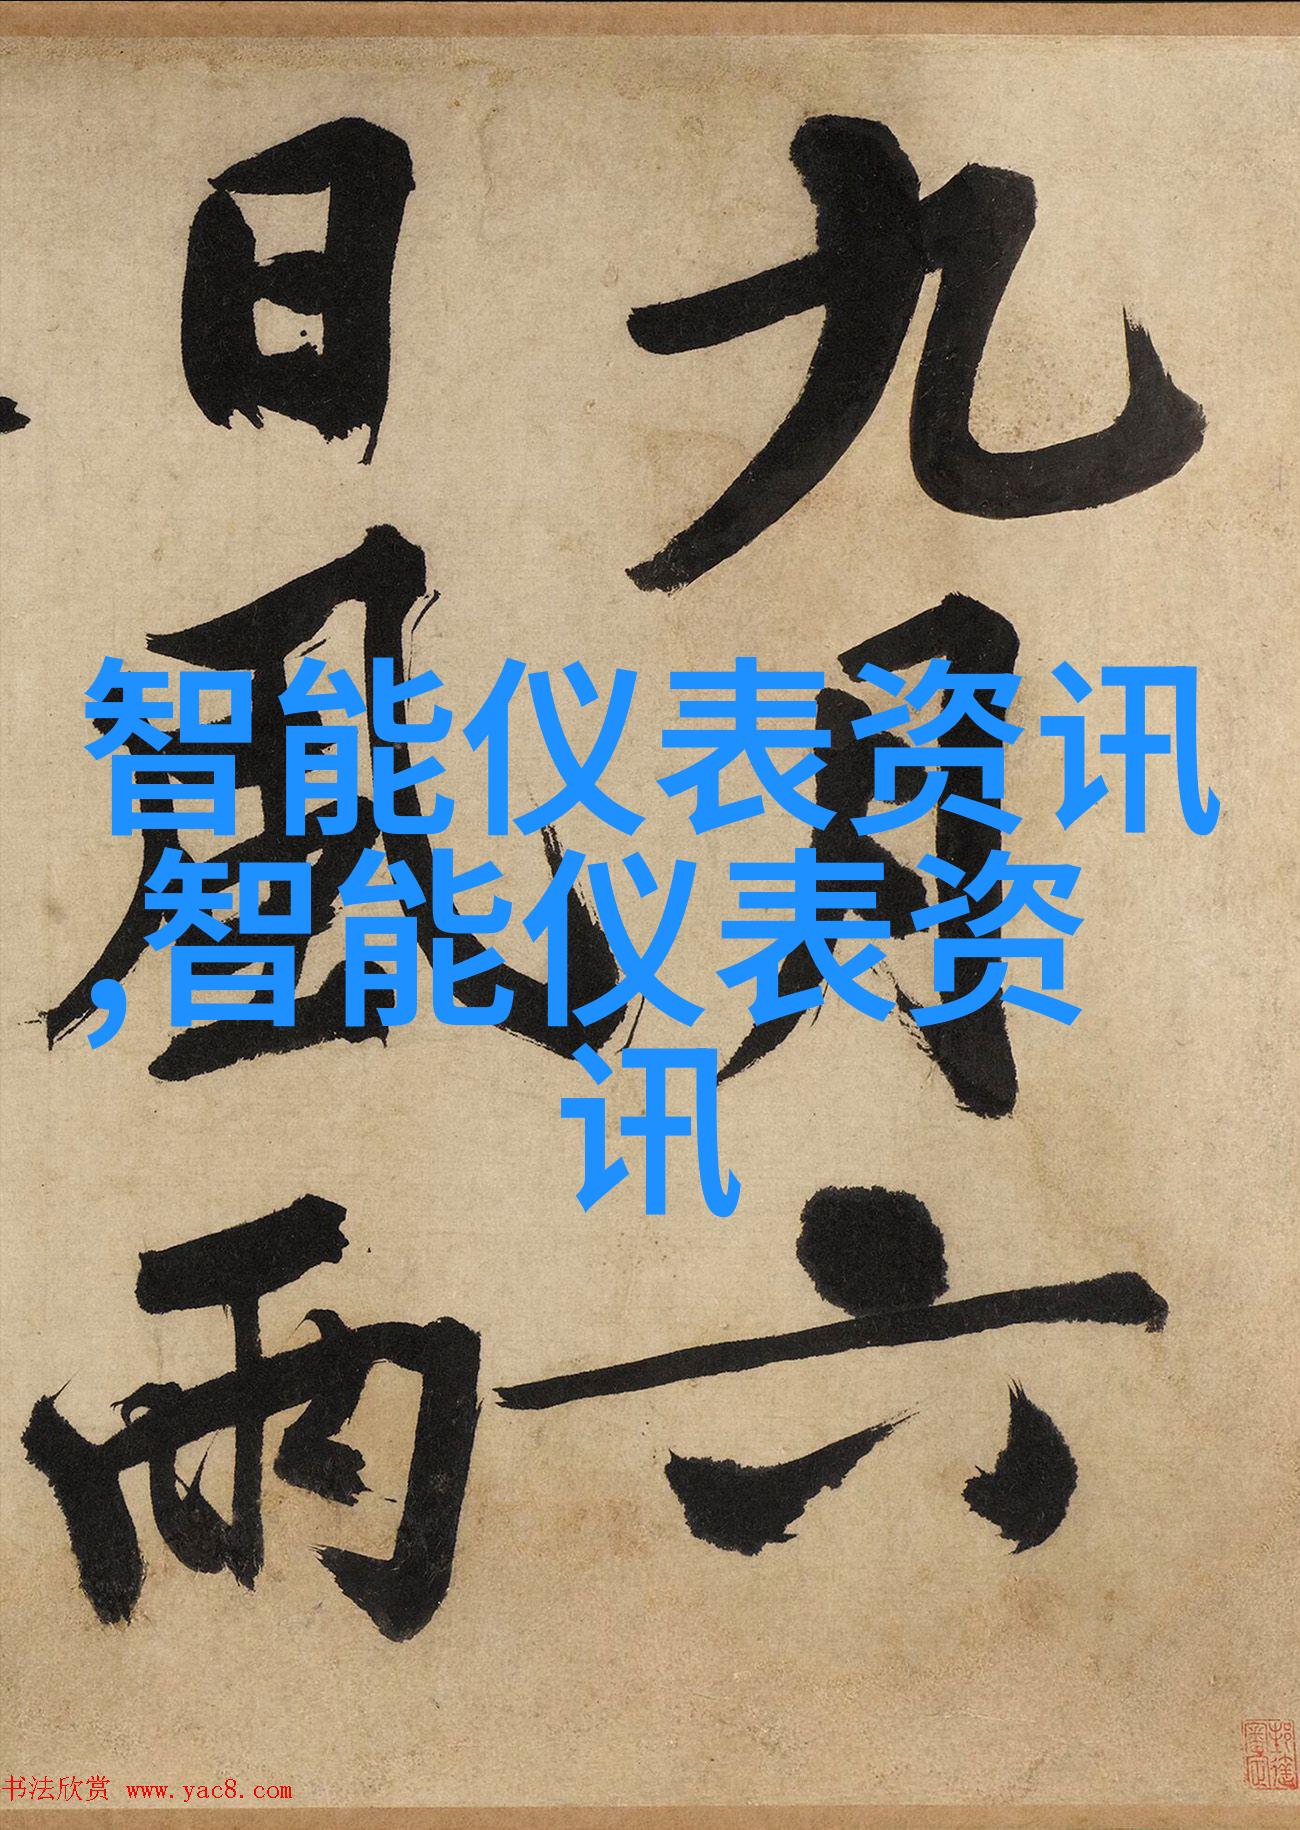 九月六
日風雨
智能仪表资讯
,智能仪表资
讯
书法欣赏 www.yac8.com